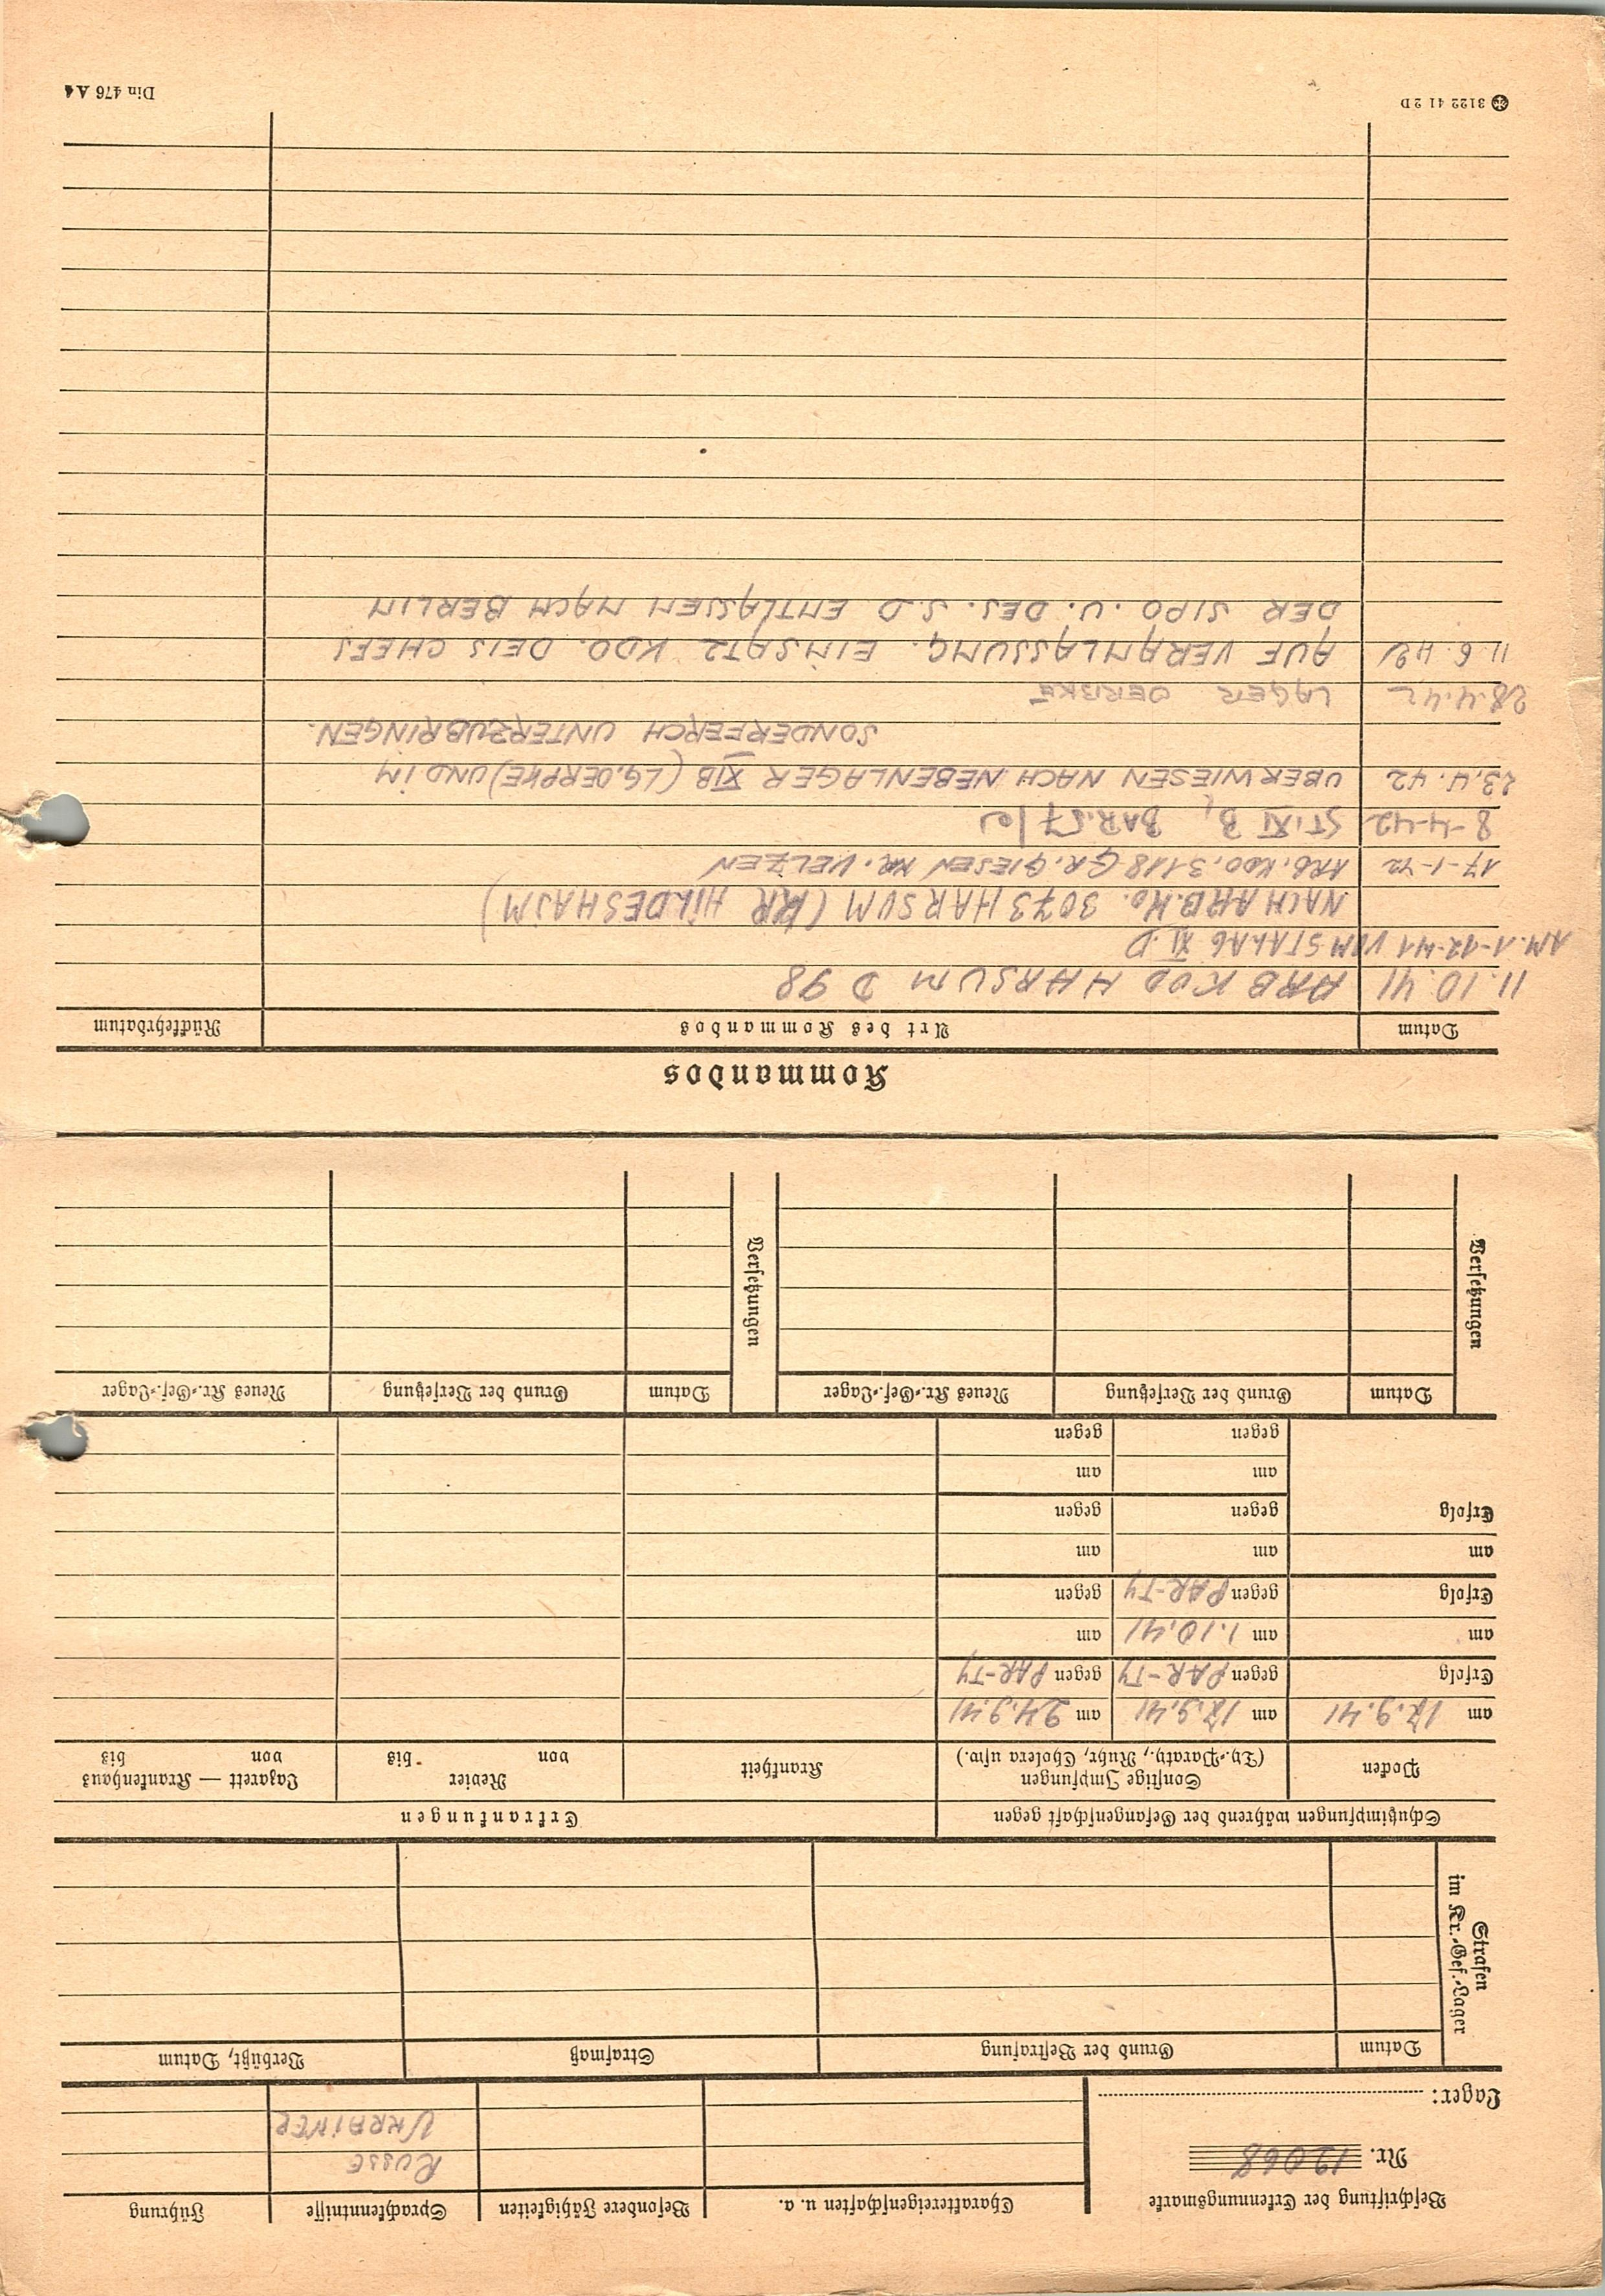 Beschriftung der Erkennungsmarke
Nr. 12068
Lager:
Charaktereigenschaften u. a.
Besondere Fähigkeiten
Sprachkenntnisse
Führung
RUSSE
UKRAINER
Strafen
im Kr.-Gef.-Lager
Datum
Grund der Bestrafung
Strafmaß
Verbüßt, Datum
Schutzimpfungen während der Gefangenschaft gegen
Erkrankungen
Pocken
Sonstige Impfungen
(Ty.-Paraty., Ruhr, Cholera usw.)
Krankheit
Revier
von bis
Lazarett — Krankenhaus
von bis
am 17.9.41 am 17.9.41 am 24.9.41
Erfolg gegen PAR-TY gegen PAR-TY
am am 1.10.41 am
Erfolg gegen PAR-TY gegen
am am am
Erfolg gegen gegen
am am
gegen gegen
Versetzungen
Datum
Grund der Versetzung
Neues Kr.-Gef.-Lager
Versetzungen
Datum
Grund der Versetzung
Neues Kr.-Gef.-Lager
Kommandos
Datum
Art des Kommandos
Rückkehrdatum
11.10.41 ARB KDO HARSUM D 98
AM.1-12-41 VOM STALAG XI.D
NACH ARB.KO. 3073 HARSUM (KR HILDESHAJM)
17-1-42 ARB.KDO.3118 GR.GIESEN KR. UELZEN
8-4-42 ST.XI B, BAR.57
23.4.42 UBERWIESEN NACH NEBENLAGER XIB (LG.OERPKE) UND IM
SONDERFERCH UNTERZUBRINGEN.
28.4.42 LAGER OERBKE
11.6.42 AUF VERANLASSUNG. EINSATZ KDO. DEIS CHEFS
DER SIPO. U. DES. S.D ENTLASSEN NACH BERLIN
3122 41 2D
Din 476 A4